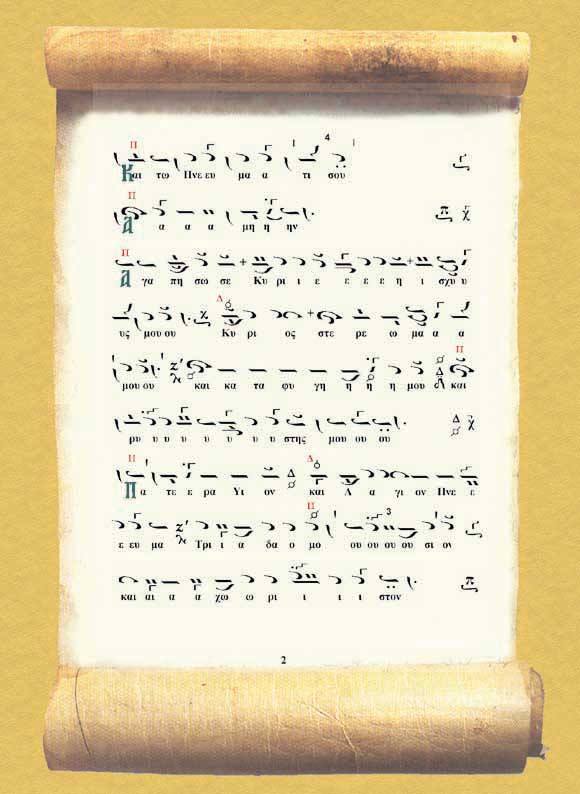 Και τω Πνε ευ μα α τι σου
Α α α α μη η ην
Α γα πη σω σε Κυ ρι ι ε ε ε ε η ι σχυ υ
υς μου ου Κυ ρι ος στε ρε ω μα α α
μου ου και κα τα φυ γη η η η μου και
ρυ υ υ υ υ υ υ στης μου ου ου
Πα τε ε ρα Υι ον και Α α γι ον Πνε ε
ε ευ μα Τρι ι α δα ο μο ου ου ου ου σι ον
και αι α α χω ω ρι ι ι ι στον
2